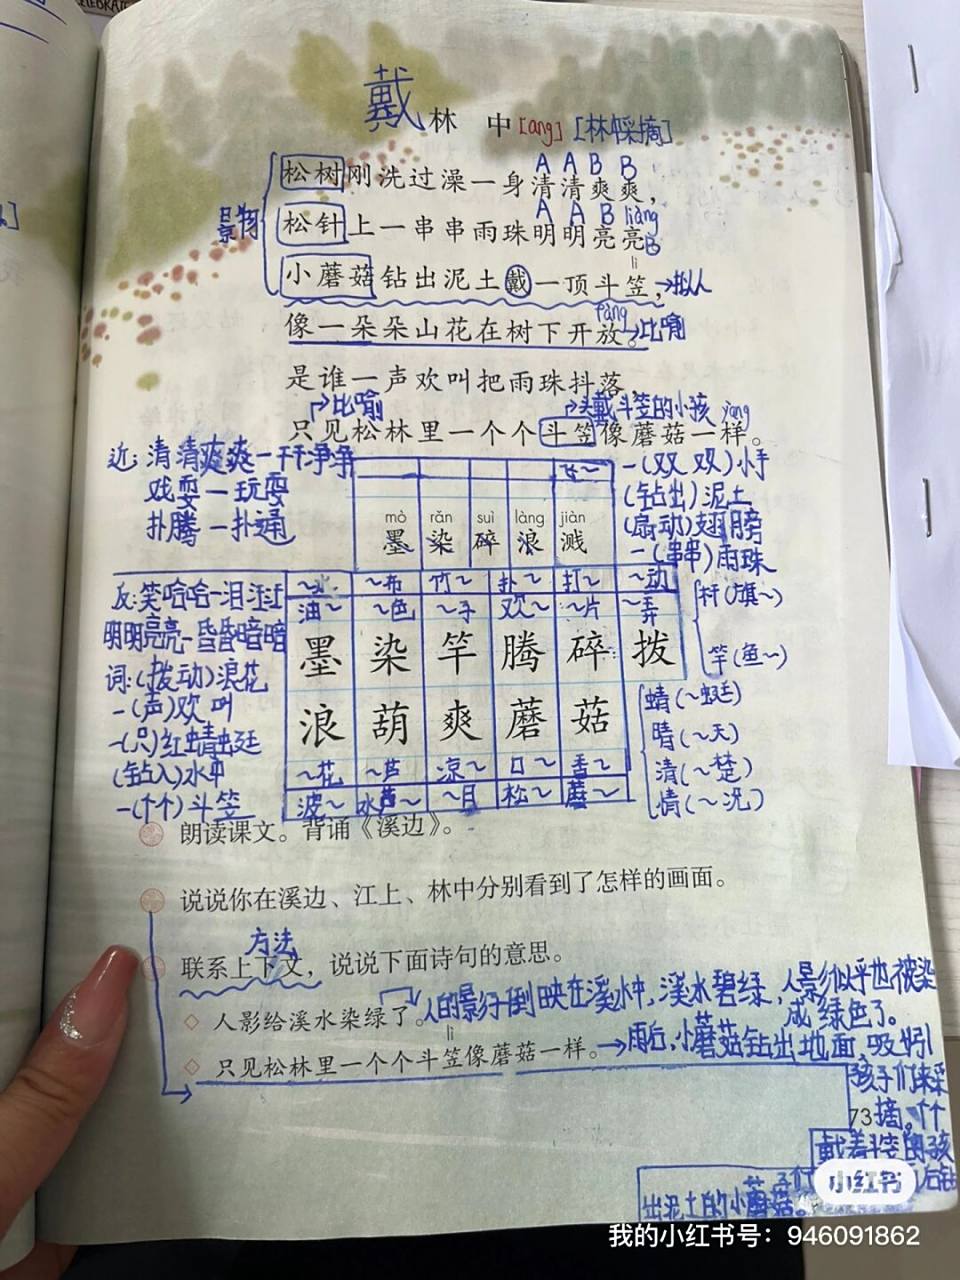 戴
林 中 [ang] [林中采摘]
A A B B
松树刚洗过澡一身清清爽爽，
A A B liàng B
景物
松针上一串串雨珠明明亮亮
lì
小蘑菇钻出泥土戴一顶斗笠，→拟人
fàng
像一朵朵山花在树下开放。→比喻
是谁一声欢叫把雨珠抖落，
比喻 →头戴斗笠的小孩 yàng
只见松林里一个个斗笠像蘑菇一样。
近：清清爽爽—干干净净
戏耍—玩耍
扑腾—扑通
飞～
mò rǎn suì làng jiàn
墨 染 碎 浪 溅
一(双双)小手
(钻出)泥土
(扇动)翅膀
一(串串)雨珠
反：笑哈哈—泪汪汪
明明亮亮—昏昏暗暗
词：(拨动)浪花
一(声)欢叫
一(只)红蜻蜓
(钻入)水中
一(个个)斗笠
～水 ～布 竹～ 扑～ 打～ ～动
油～ ～色 ～子 欢～ ～片 ～弄
墨 染 竿 腾 碎 拨
浪 葫 爽 蘑 菇
～花 ～芦 凉～ 口～ 香～
波～ 水～ ～口 松～ 蘑～
杆(旗～)
竿(鱼～)
蜻(～蜓)
晴(～天)
清(～楚)
情(～况)
朗读课文。背诵《溪边》。
说说你在溪边、江上、林中分别看到了怎样的画面。
方法
联系上下文，说说下面诗句的意思。
人影给溪水染绿了。人的影子倒映在溪水中，溪水碧绿，人影似乎也被染成绿色了。
lì
只见松林里一个个斗笠像蘑菇一样。→雨后，小蘑菇钻出地面，吸引
孩子们来采
73
摘。个个
戴着斗笠的孩
出泥土的小蘑菇。
小红书
我的小红书号：946091862